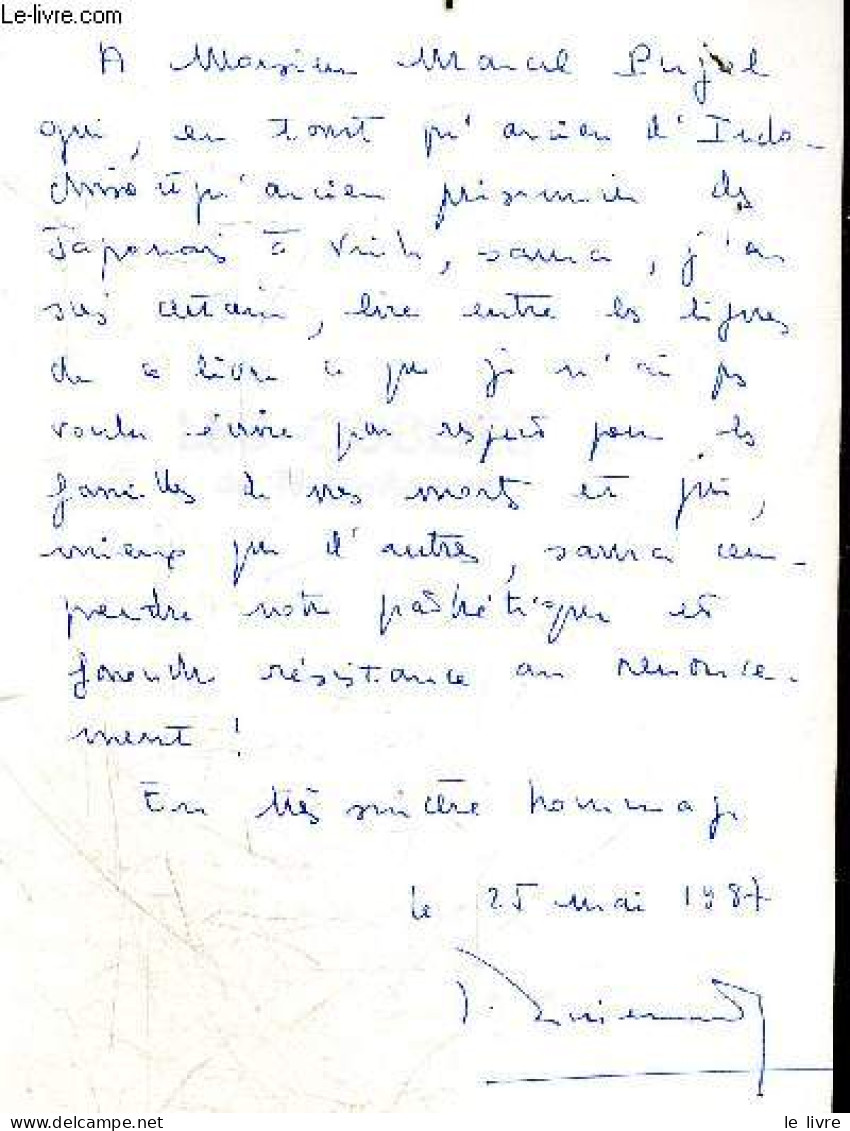 Le-livre.com
A Monsieur Marcel Pujol
qui, en tant qu'ancien d'Indo-
chine et qu'ancien prisonnier des
Japonais à Vinh, saura, j'en
suis certain, lire entre les lignes
de ce livre ce que je n'ai pas
voulu écrire par respect pour les
familles de nos morts et qui,
mieux que d'autres, saura com-
prendre notre pathétique et
farouche résistance au renonce-
ment !
En très sincère hommage
le 25 mai 1987
le livre